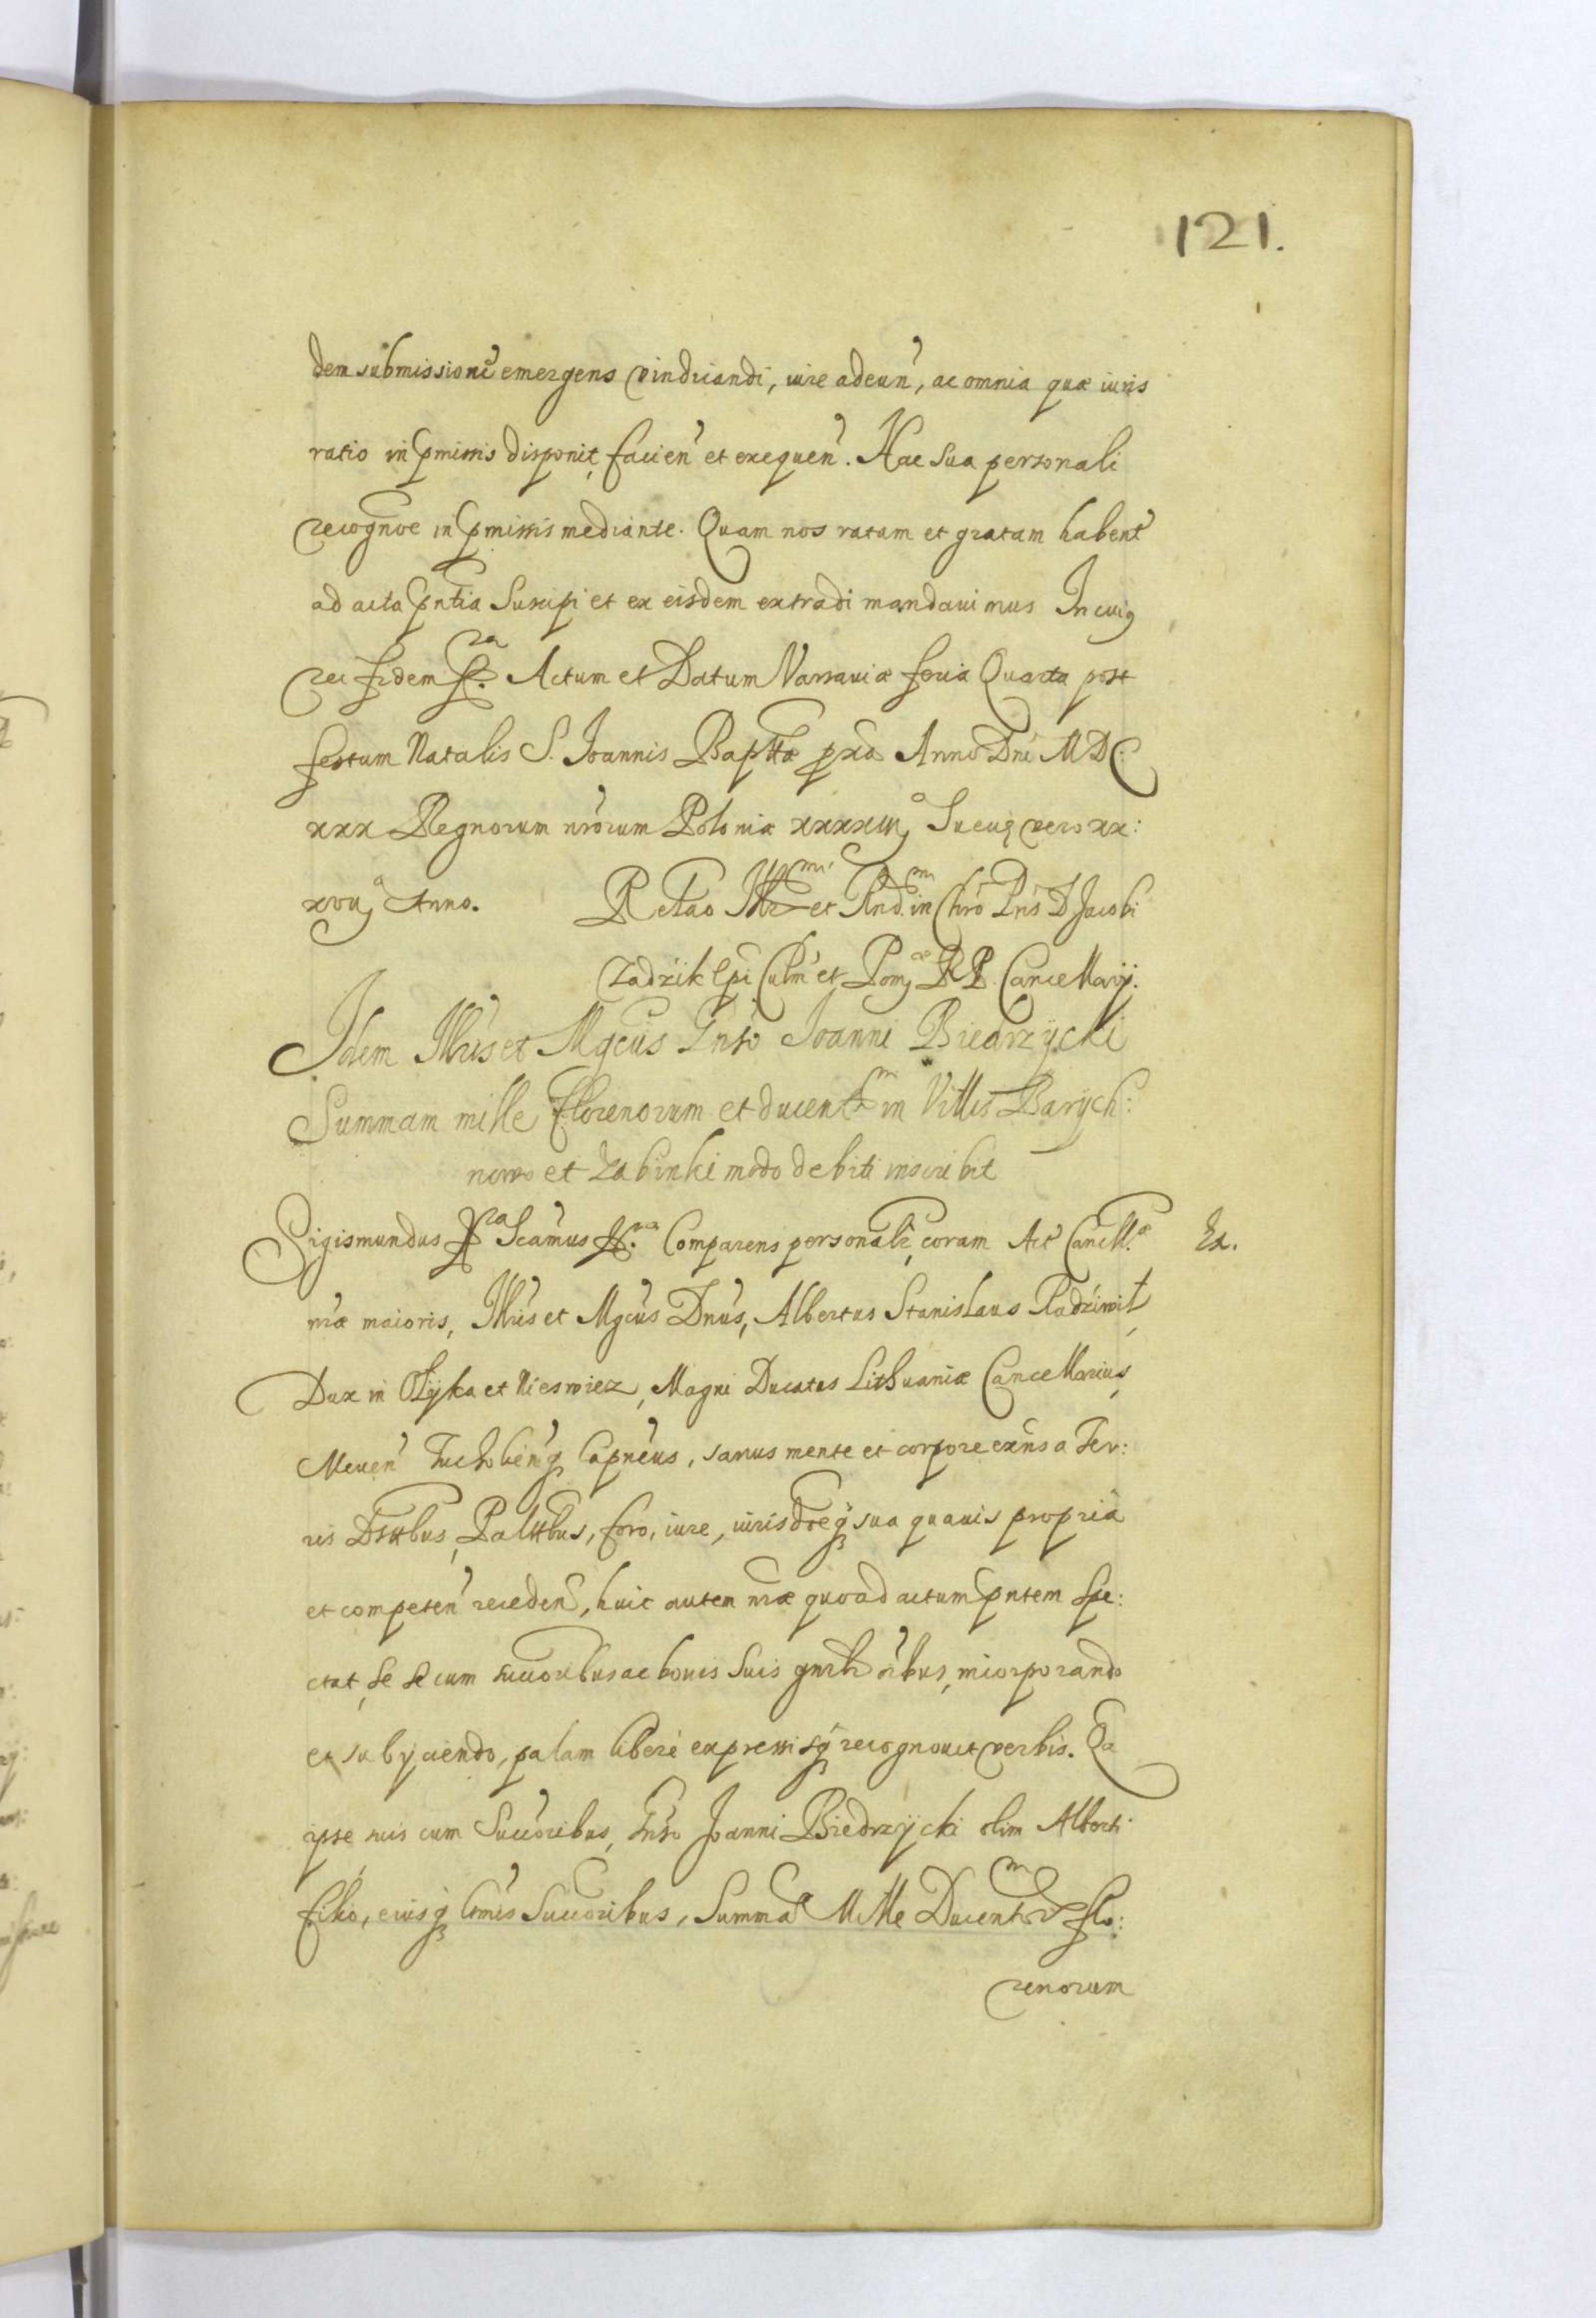 121.
dem submissione emergens vindicandi, iure adeun̄, ac omnia quæ iuris
ratio in p̄missis disponit, facien̄ et exequen̄. Hac sua personali
recogn̄ne in p̄missis mediante. Quam nos ratam et gratam habent̄
ad acta p̄ntia Suscipi et ex eisdem extradi mandauimus In cuiꝯ
rei fidem Actum et Datum Varsauiæ feria Quarta post
festum Natalis S. Joannis Bapttæ pxa Anno Dni MDC:
xxx Regnorum nr̄orum Poloniæ xxxxiij Sueciꝗ vero xx:
xvij Anno. Rel̄ao Illr̄mi et Rn̄dmi in Chro Pris D Jacobi
Zadzik Ep̄i Culm̄ et Pomꝫ RP. Cancellarij.
Idem Illris et Mgcus Gnso Joanni Biedrzycki
Summam mille florenorum et ducent̄rm in Villis Barych:
nowo et Zabinki modo debiti inscribit
Sigismundus Scāmus Comparens personalr̄, coram Act̄ Cancell.æ Ex.
nr̄æ maioris, Illris et Mgcus Dnus, Albertus Stanislaus Radziwił,
Dux in Ołyka et Nieswiez, Magni Ducatus Lithuaniæ Cancellarius,
Meuen̄ Tucholien̄ꝗ Capneus, sanus mente et corpore exn̄s a Ter:
ris Dsttbus, Palttbus, foro, iure, iurisdr̄eꝗ sua quauis propria
et competen̄ receden̄, huic autem nr̄æ quoad actum p̄ntem spe:
ctat, se se cum succoribus ac bonis suis gn̄rlr̄ ōibus, incorporando
et subyciendo, palam libere expressisꝗ recognouit verbis. Qa
ipse suis cum Succoribus, Gnso Joanni Biedrzycki olim Alberti
filio, eiusꝗ ltmis Succoribus, Summā Mille Ducentorm flo:
renorum